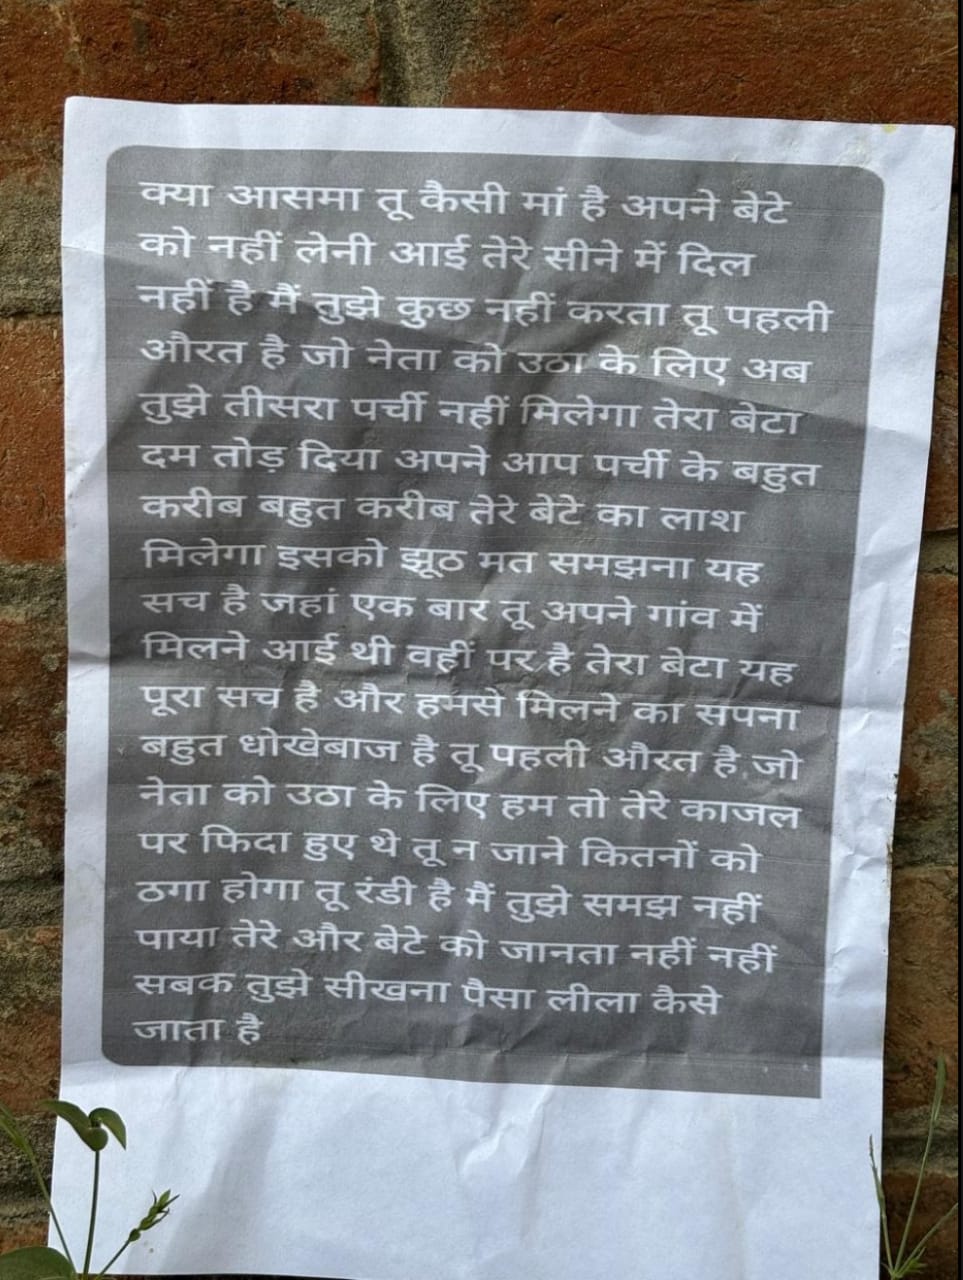 क्या आसमा तू कैसी मां है अपने बेटे
को नहीं लेनी आई तेरे सीने में दिल
नहीं है मैं तुझे कुछ नहीं करता तू पहली
औरत है जो नेता को उठा के लिए अब
तुझे तीसरा पर्ची नहीं मिलेगा तेरा बेटा
दम तोड़ दिया अपने आप पर्ची के बहुत
करीब बहुत करीब तेरे बेटे का लाश
मिलेगा इसको झूठ मत समझना यह
सच है जहां एक बार तू अपने गांव में
मिलने आई थी वहीं पर है तेरा बेटा यह
पूरा सच है और हमसे मिलने का सपना
बहुत धोखेबाज है तू पहली औरत है जो
नेता को उठा के लिए हम तो तेरे काजल
पर फिदा हुए थे तू न जाने कितनों को
ठगा होगा तू रंडी है मैं तुझे समझ नहीं
पाया तेरे और बेटे को जानता नहीं नहीं
सबक तुझे सीखना पैसा लीला कैसे
जाता है